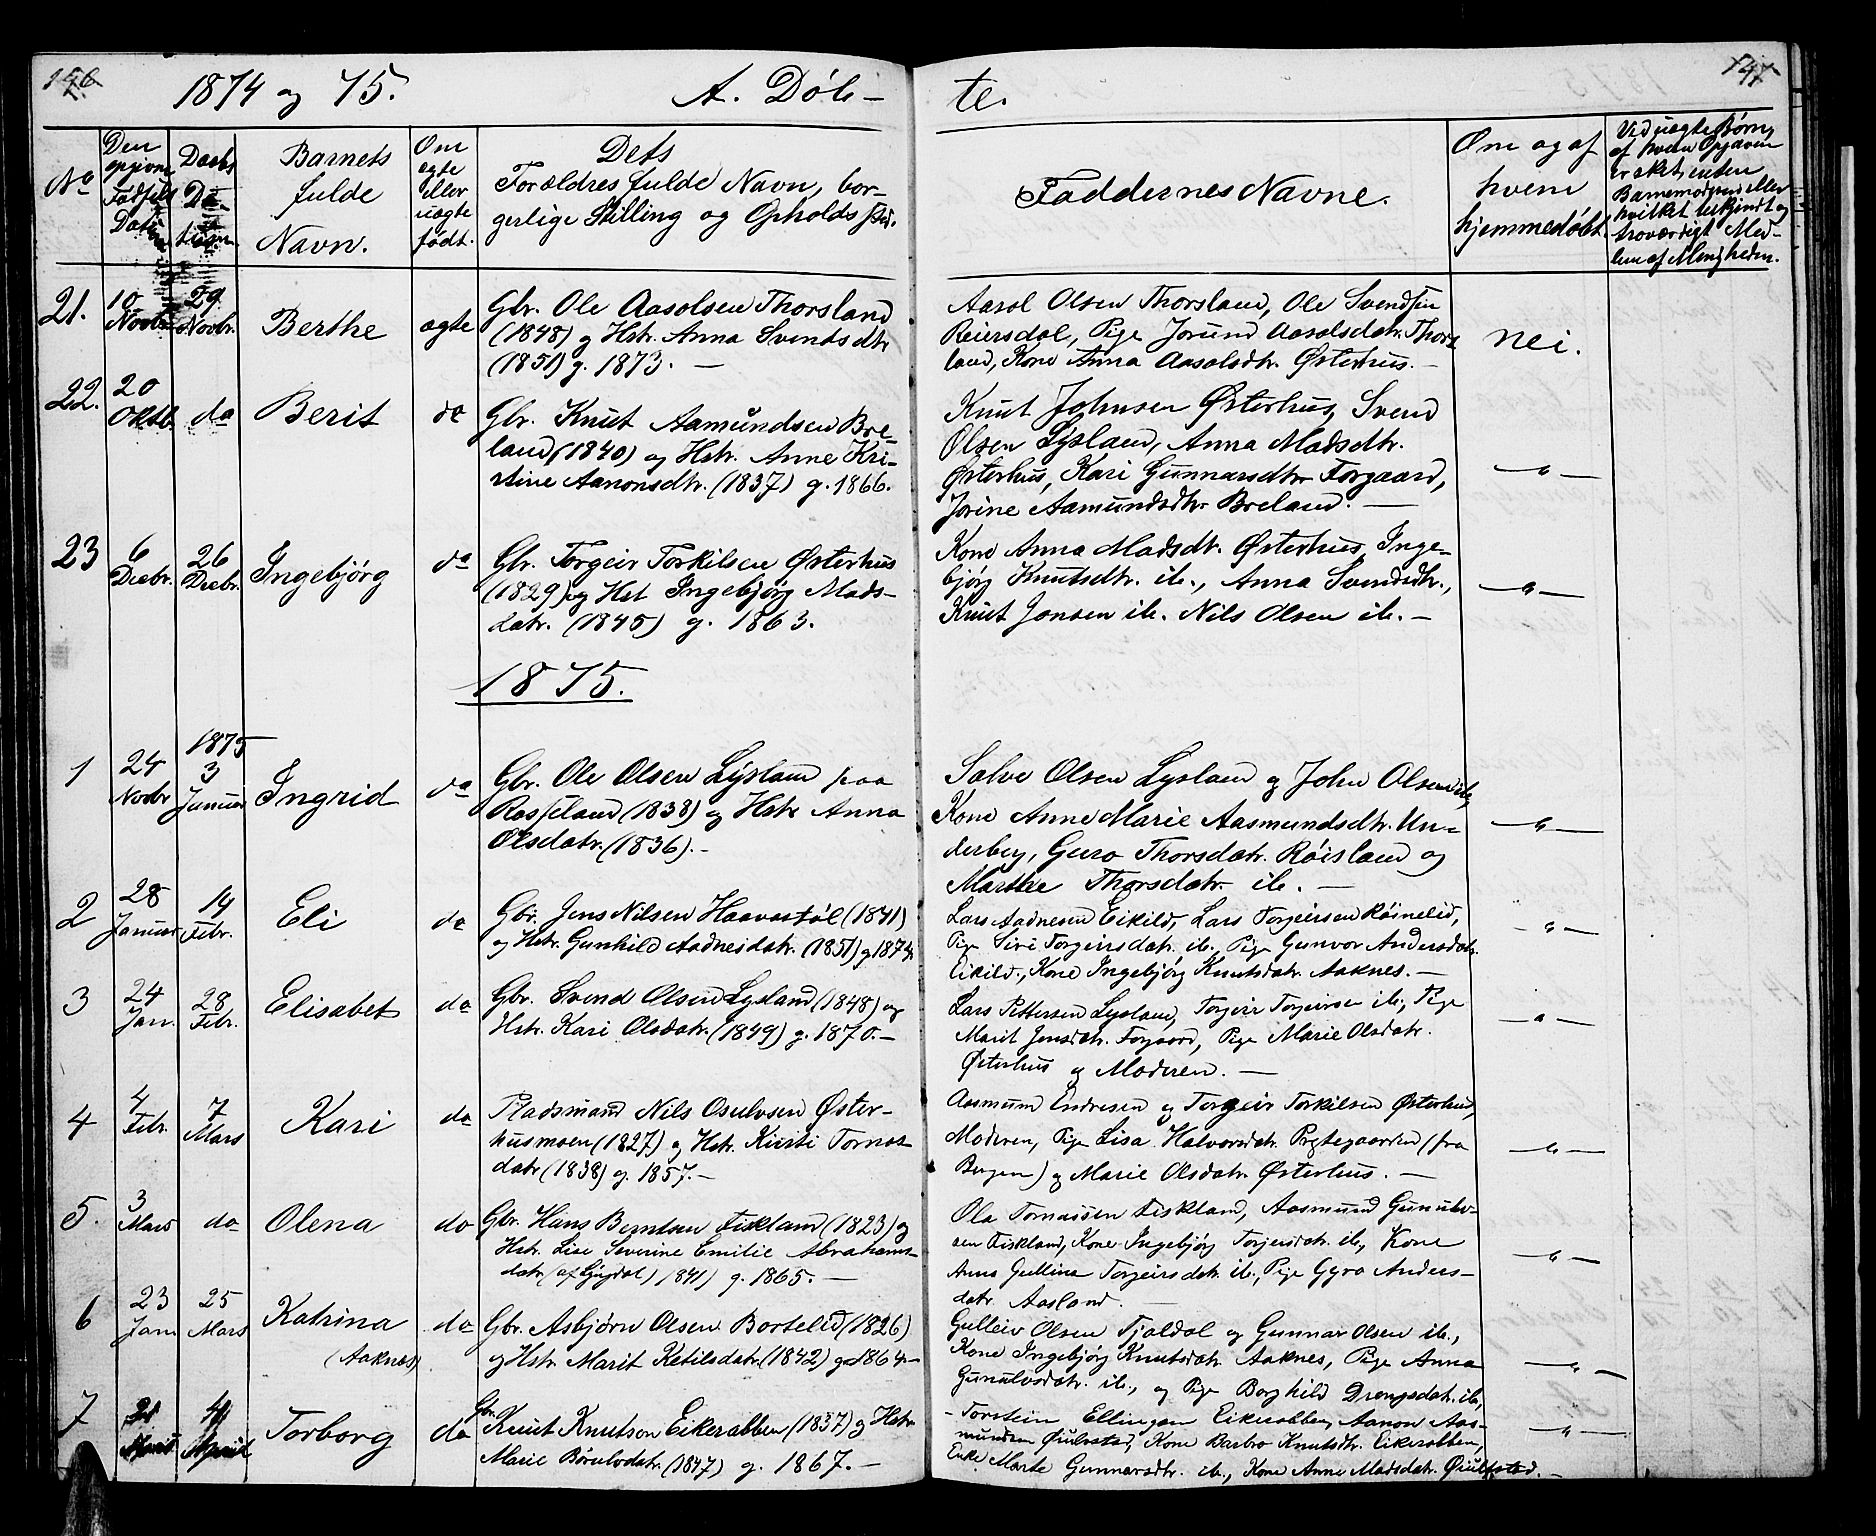 146
1874 og 75.
A. Døb-
te.
147
No
Den opgivne Fødsels Datum
Daabs Datum
Barnets fulde Navn.
Om ægte eller uægte født.
Dets Forældres fulde Navn, borgerlige Stilling og Opholdssted.
Faddernes Navne.
Om og af hvem hjemmedøbt.
Ved uægte Børn, af hvem Opgaven er sket, enten Barnemoderen eller hvilket bekjendt og troværdigt Medlem af Menigheden.
21.
10 Novbr.
29 Novbr.
Berthe
ægte
Gbr. Ole Aasolsen Thorsland
(1848) og Hstr. Anna Svendsdtr
(1851) g. 1873. —
Aasol Olsen Thorsland, Ole Svendsen
Reiersdal, Pige Jorund Aasolsdatr. Thors
land, Kone Anna Aasolsdtr. Østerhus. —
nei.
22.
20 Oktb.
do
Berit
do
Gbr. Knut Aamundsen Bre-
land (1840) og Hstr. Anne Kri-
stine Aanonsdtr. (1837) g. 1866.
Knut Johnsen Østerhus, Svend
Olsen Lysland, Anna Madsdtr.
Østerhus, Kari Gunnarsdtr Forgaard,
Jorine Aamundsdtr Breland. —
—"—
23
6 Decbr.
26 Decbr.
Ingebjørg
do
Gbr. Torgeir Torkilsen Østerhus
(1829) og Hst Ingebjørg Mads-
datr. (1845) g. 1863.
Kone Anna Madsdt. Østerhus, Inge-
bjørg Knutsdtr. ib., Anna Svendsdtr.,
Knut Jonsen ib. Nils Olsen ib. —
—"—
1875.
1
24 Novbr
1875
3 Januar
Ingrid
do
Gbr. Ole Olsen Lysland paa
Rosseland (1838) og Hstr Anna
Olsdatr. (1836). —
Salve Olsen Lysland og John Olsen ib,
Kone Anne Marie Aasmundsdtr. Un-
derberg, Guro Thorsdatr. Røisland og
Marthe Thorsdatr ib. —
—"—
2
28 Januar
14 Febr.
Eli
do
Gbr. Jens Nilsen Haavorstøl (1841)
og Hstr. Gunhild Aadnesdatr. (1851) g 1874
Lars Aadnesen Eikild, Lars Torgeirsen Røinelid,
Pige Siri Torgeirsdatr. ib., Pige Gunvor Andersdatr.
Eikild., Kone Ingebjørg Knutsdatr. Aaknes. —
—"—
3
24 Jan.
28 Febr.
Elisabet
do
Gbr. Svend Olsen Lysland (1848) og
Hstr. Kari Olsdatr. (1849) g. 1870. —
Lars Pettersen Lysland, Torgeir Torgeirsen ib., Pige
Marit Jensdatr. Forgaard, Pige Marie Olsdatr.
Østerhus og Moderen. —
—"—
4
4 Febr.
7 Mars
Kari
do
Pladsmand Nils Osulvsen Øster-
husmoen (1827) og Hstr. Kirsti Tornes
datr (1838) g. 1857. —
Aasmund Endresen og Torgeir Torkilsen Østerhus,
Moderen, Pige Lisa Halvorsdatr. Prestegaarden (fra
Bergen) og Marie Olsdatr. Østerhus. —
—"—
5.
3 Mars
do
Olena
do
Gbr. Hans Berntsen Fiskland (1823) og
Hstr. Lise Severine Emilie Abrahams-
datr. (af Lyngdal) 1841) g. 1865. —
Ola Tornassen Fiskland, Aasmund Gunulv-
sen Fiskland, Kone Ingebjørg Torjersdatr. ib., Kone
Anna Gullina Torgeirsdatr. ib., Pige Gyro Anders-
datr. Aasland. —
—"—
6
23 Jan
25 Mars
Katrina
(Aaknes)
do
Gbr. Asbjørn Olsen Bortelid (1826)
og Hstr. Marit Ketilsdatr. (1842) g 1864 —
Gulleiv Olsen Tjaldal og Gunnar Olsen ib.,
Kone Ingebjørg Knutsdatr. Aaknes, Pige Anna
Gunulvsdatr. ib., og Pige Borghild Drengsdatr. ib,
—"—
7
Marts
4 April
Torborg
do
Gbr.
Knut Knutson Eikerabben (1837) og Hstr.
Marie Børulvdatr. (1847) g. 1867. —
-Torstein Ellingsen Eikerabben, Aanon Aas-
mundsen Øiulvstad, Kone Barbro Knutsdtr. Eikerabben,
Enke Marte Gunnarsdtr. ib., Kone Anne Madsdatr. Øiulfstad. —
—"—